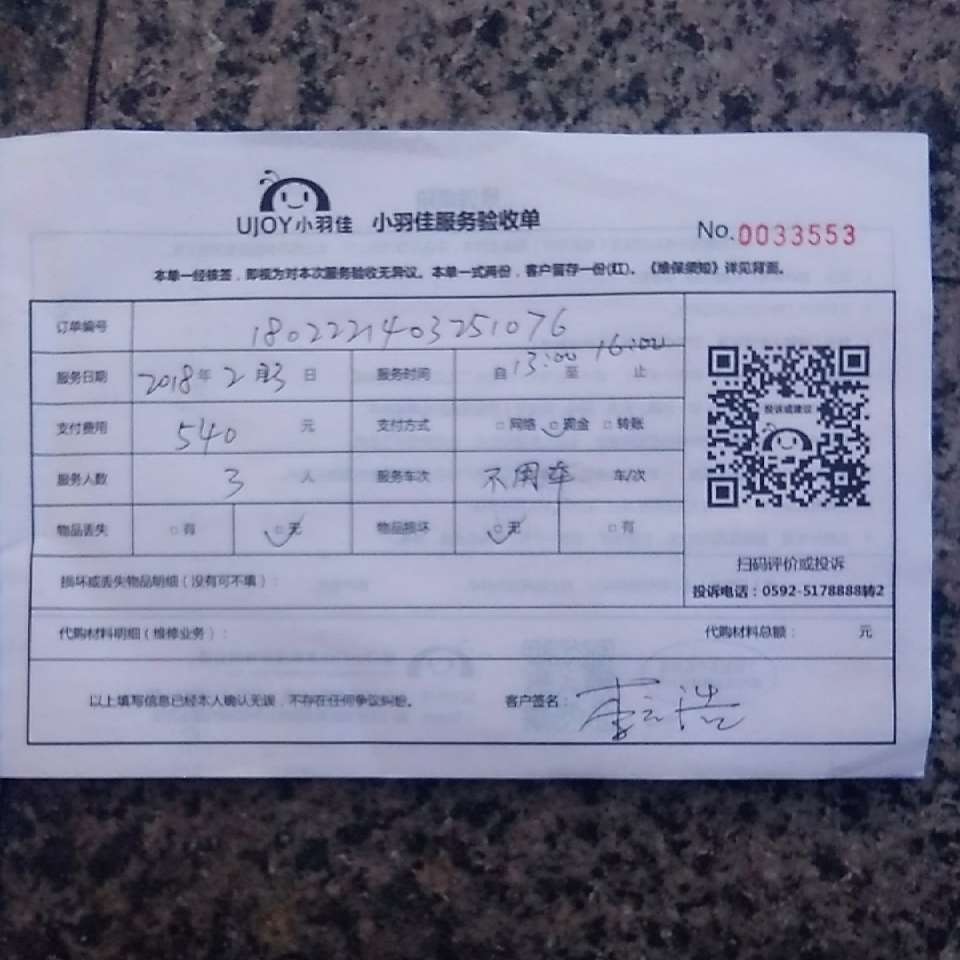 UJOY小羽佳 小羽佳服务验收单
No.0033553
本单一经核签，即视为对本次服务验收无异议。本单一式两份，客户留存一份(红)。《维保须知》详见背面。
订单编号 180222140325107６
服务日期 2018年 2月 日 服务时间 自13:00至16:00止
支付费用 540 元 支付方式 □网络 □现金 □转账
投诉或建议
服务人数 3 人 服务车次 不用车 车/次
物品丢失 □有 □无 物品损坏 □无 □有
扫码评价或投诉
损坏或丢失物品明细（没有可不填）：
投诉电话：0592-5178888转2
代购材料明细（维修业务）： 代购材料总额： 元
以上填写信息已经本人确认无误，不存在任何争议纠纷。 客户签名：